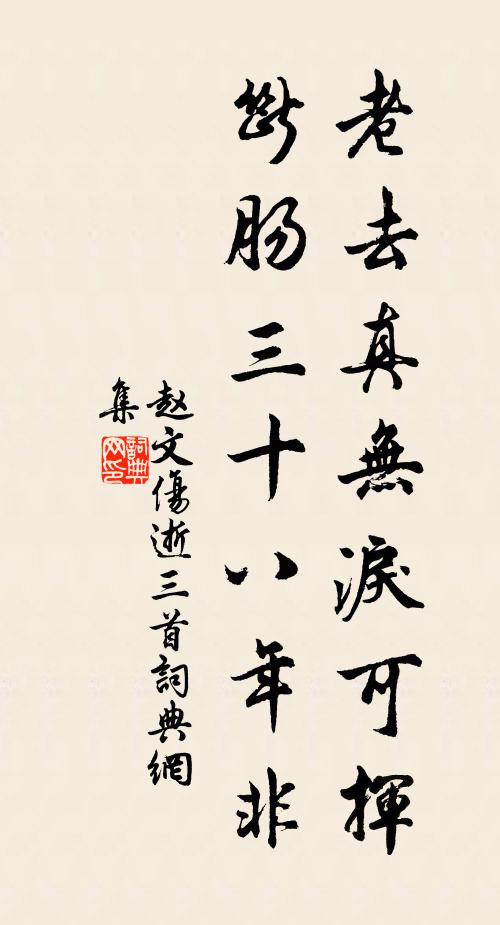 老去真無淚可揮
斷肠三十八年非
赵文傷逝三首詞典網
集
詞典
网印